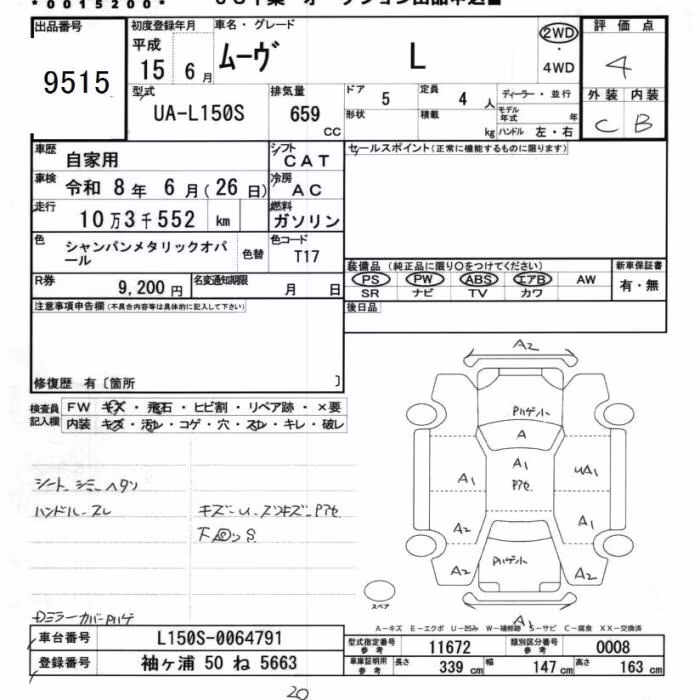 *0015200*
出品番号 9515
初度登録年月 平成 15 6月
車名・グレード ムーヴ L
2WD ・ 4WD
評価点 4
外装 内装
C B
型式 UA-L150S
排気量 659 CC
ドア 5
定員 4 人
ディーラー・並行
形状
積載 kg
モデル年式 年
ハンドル 左・右
車歴 自家用
シフト CAT
セールスポイント(正常に機能するものに限ります)
車検 令和 8年 6月(26日)
冷房 AC
走行 10万3千552 km
燃料 ガソリン
色 シャンパンメタリックオパール
色替
色コード T17
装備品 (純正品に限り○をつけてください)
新車保証書
PS PW ABS エアB AW
SR ナビ TV カワ
有・無
R券 9,200円
名変通知期限 月 日
後日品
注意事項申告欄(不具合内容等は具体的に記入して下さい)
修復歴 有〔箇所 〕
検査員記入欄
FW キズ・飛石・ヒビ割・リペア跡・×要
内装 キズ・汚レ・コゲ・穴・スレ・キレ・破レ
シート シミ ヘタリ
ハンドル スレ
キズ U スリキズ P他
下回りS
Dミラーカバーハゲ
A2
Pハゲ小
A
A1
A1
P他
UA1
A2
A1
A2
Pハゲ小
A2
A1
スペア
A-キズ E-エクボ U-凹み W-補修跡 S-サビ C-腐食 XX-交換済
車台番号 L150S-0064791
登録番号 袖ヶ浦 50 ね 5663
型式指定番号 参考 11672
類別区分番号 参考 0008
車庫証明用 参考 長さ 339 cm 幅 147 cm 高さ 163 cm
20